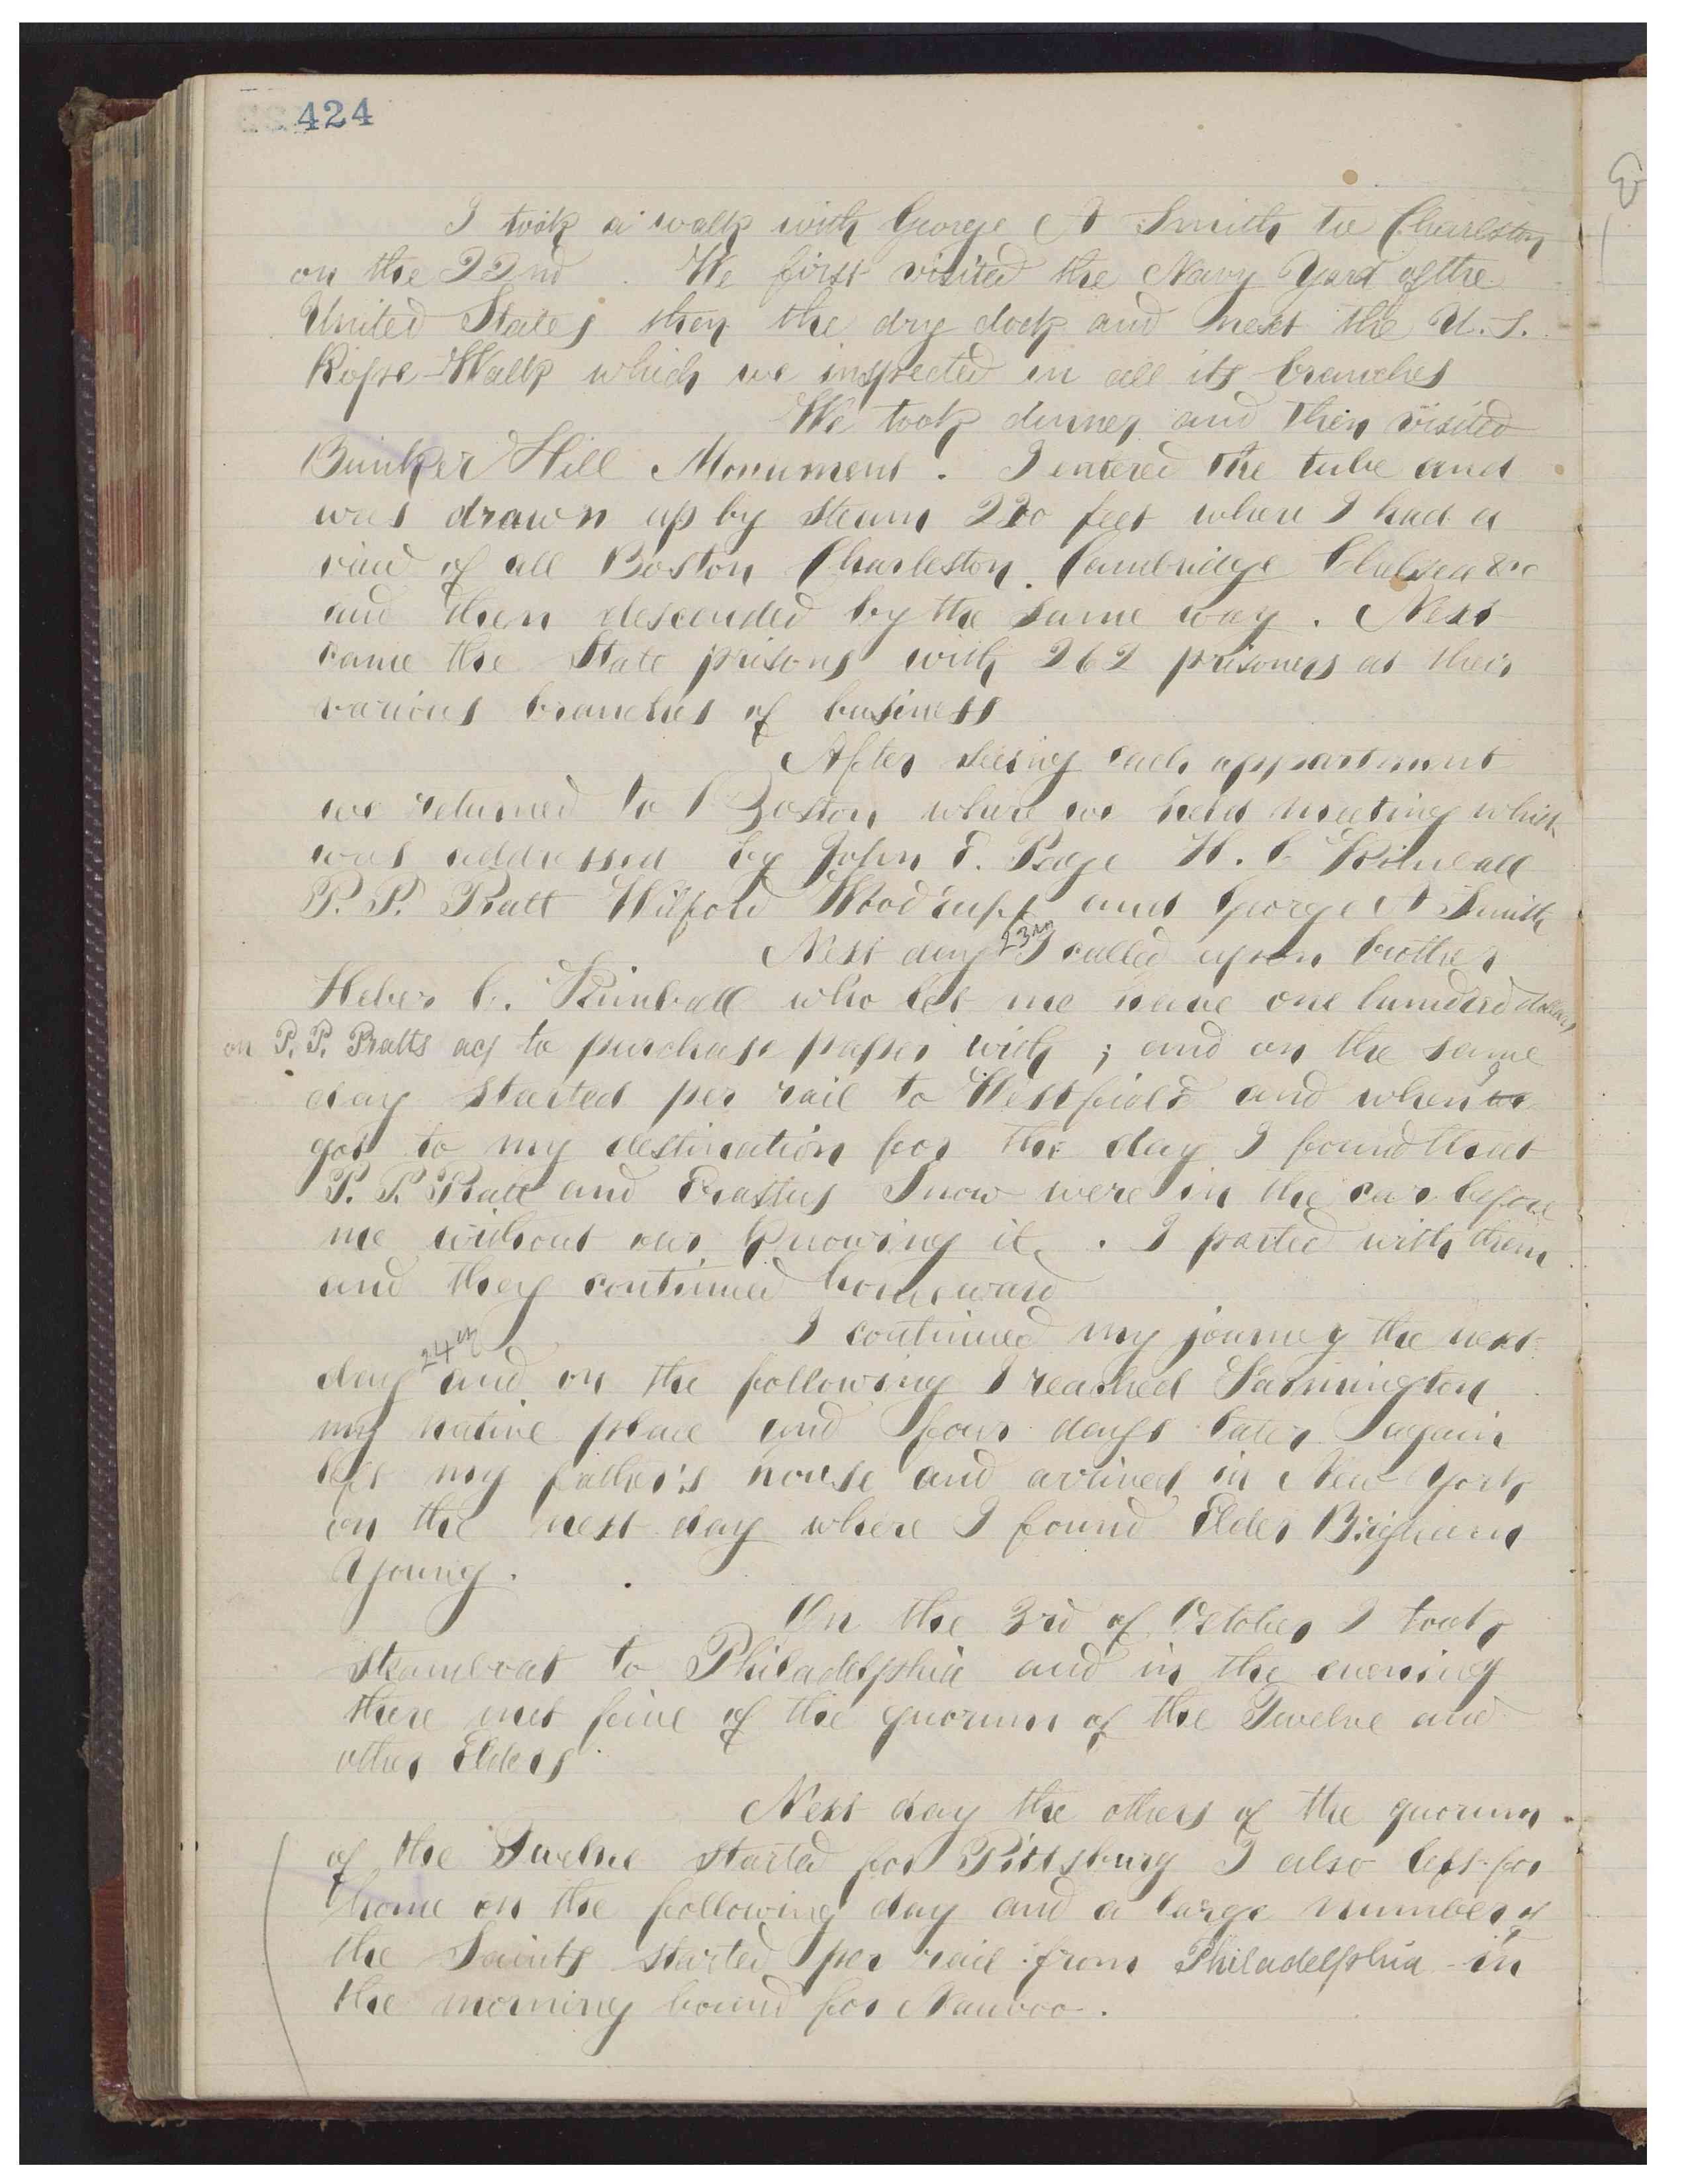 424
I took a walk with George A Smith to Charleston
on the 22nd. We first visited the Navy Yard of the
United States then the dry dock and next the U.S.
Rope-Walk which we inspected in all its branches
We took dinner and then visited
Bunker Hill Monument. I entered the tube and
was drawn up by steam 220 feet where I had a
view of all Boston Charleston. Cambridge Chelsea &c
and then descended by the same way. Next
came the State prisons with 262 prisoners at their
various branches of business
After seeing each appartment
we returned to Boston where we held meeting which
was addressed by John E. Page H. C Kimball
P. P. Pratt Wilford Woodruff and George A Smith
Next day 23rd I called upon brother
Heber C. Kimball who let me have one hundred dollars
on P. P. Pratts act to purchase paper with; and on the same
day started per rail to Westfield and when I
got to my destination for the day I found that
P. P. Pratt and Erastus Snow were in the car before
me without our knowing it. I parted with them
and they continued homeward
I continued my journey the next
day 24th and on the following I reached Farmington
my native place and four days later I again
left my father's house and arrived in New York
on the next day where I found Elder Brigham
Young.
On the 3rd of October I took
steamboat to Philadelphia and in the evening
there met five of the quorum of the Twelve and
other Elders
Next day the others of the quorum
of the Twelve started for Pittsburg I also left for
home on the following day and a large number of
the Saints started per rail from Philadelphia in
the morning bound for Nauvoo.